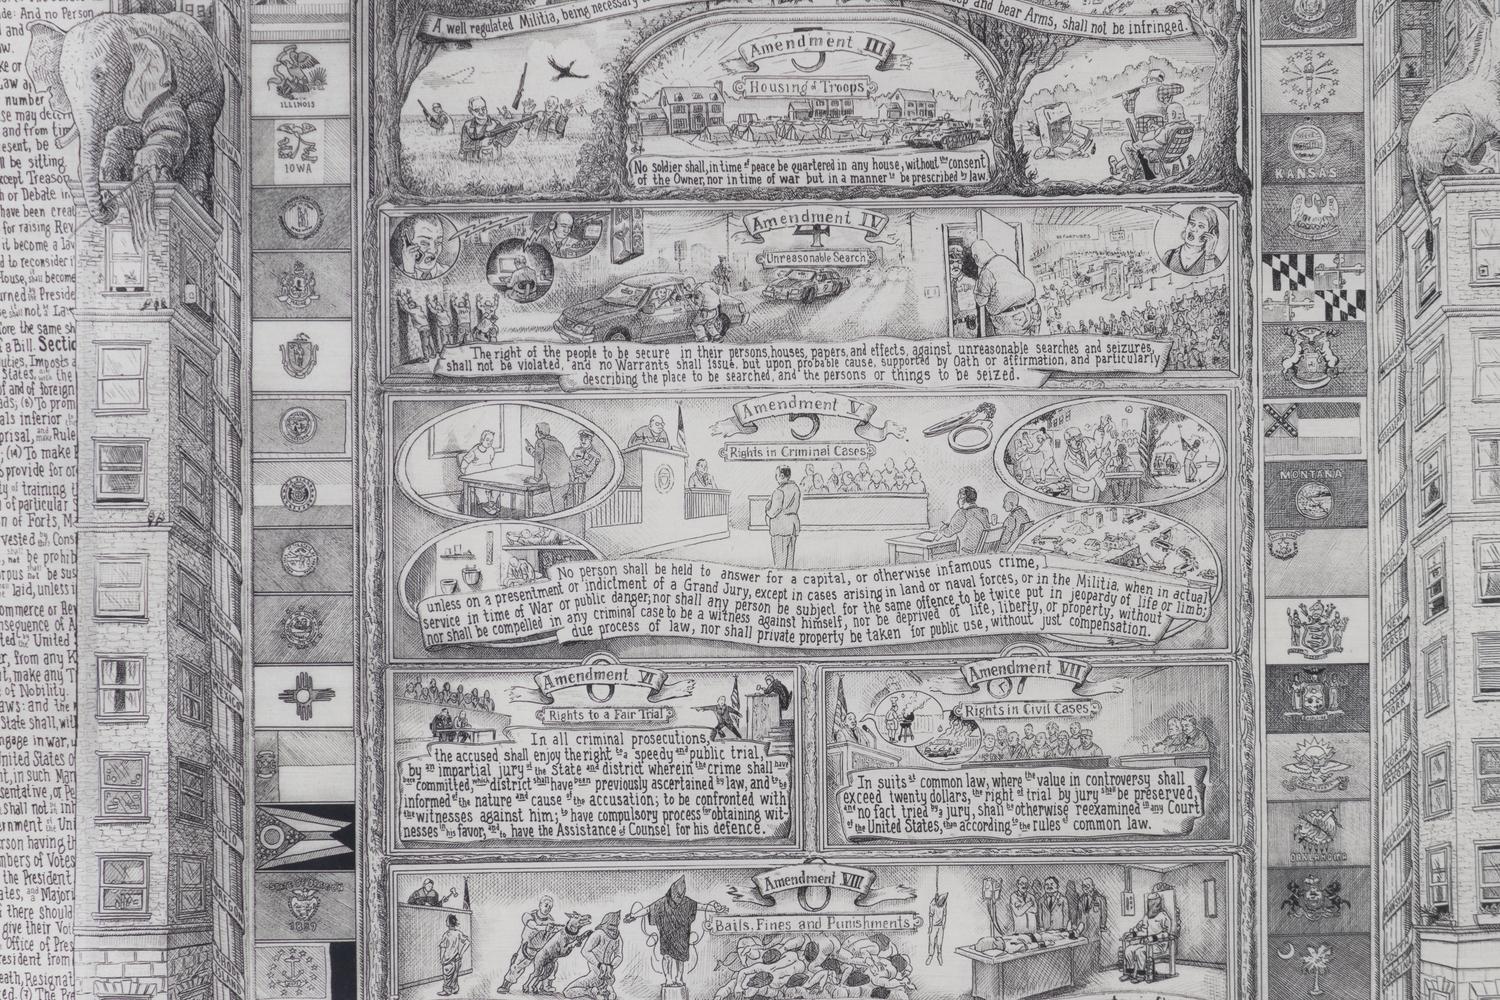 A well regulated Militia, being necessary
and bear Arms, shall not be infringed.
Amendment III
3
Housing of Troops
No soldier shall, in time of peace be quartered in any house, without the consent
of the Owner, nor in time of war but in a manner to be prescribed by law.
Amendment IV
4
Unreasonable Search
DEPARTURES
The right of the people to be secure in their persons, houses, papers, and effects, against unreasonable searches and seizures,
shall not be violated, and no Warrants shall issue, but upon probable cause, supported by Oath or affirmation, and particularly
describing the place to be searched, and the persons or things to be seized.
Amendment V
5
Rights in Criminal Cases
No person shall be held to answer for a capital, or otherwise infamous crime,
unless on a presentment or indictment of a Grand Jury, except in cases arising in land or naval forces, or in the Militia, when in actual
service in time of War or public danger; nor shall any person be subject for the same offence to be twice put in jeopardy of life or limb;
nor shall be compelled in any criminal case to be a witness against himself, nor be deprived of life, liberty, or property, without
due process of law, nor shall private property be taken for public use, without just compensation.
Amendment VI
6
Rights to a Fair Trial
In all criminal prosecutions,
the accused shall enjoy the right to a speedy and public trial,
by an impartial jury of the State and district wherein the crime shall have
been committed, which district shall have been previously ascertained by law, and to be
informed of the nature and cause of the accusation; to be confronted with
the witnesses against him; to have compulsory process for obtaining wit-
nesses in his favor, and to have the Assistance of Counsel for his defence.
Amendment VII
7
Rights in Civil Cases
In suits at common law, where the value in controversy shall
exceed twenty dollars, the right of trial by jury shall be preserved,
and no fact tried by a jury, shall be otherwise reexamined in any Court
of the United States, than according to the rules of common law.
Amendment VIII
8
Bails, Fines and Punishments
ILLINOIS
IOWA
STATE OF OREGON
1859
KANSAS
MONTANA
OKLAHOMA
OHIO
OREGON
NEW
JERSEY
NEW
YORK
de: And no Person
and
law.
ke or
Law
number
se may
and from
resent, be
ll be sitting
xcept Treason
h or Debate in
have been
for raising Rev
it become a law
d to reconsider
House, shall become
urned by Preside
not be Law
fore the same sh
f a Bill. Section
uties, Imposts a
States, with the
of and of foreign
(6) To prom
als inferior
prisal, and make Rule
(14) To make
provide for
ty of training
of particular S
n of Forts, Ma
vested by Cons
shall not be prohib
orpus not be sus
laid, unless i
ommerce or Rev
nsequence of A
United
er, from any K
it, make any T
of Nobility.
aws: and the
State shall, wit
ngage in war, u
United States of
nt, in such Man
sentative, or Pe
shall not
ernment of the Uni
erson having th
mbers of Votes
the President
ates, and Majori
f there should
give their Vot
Office of Pres
resident from
eath, Resignat